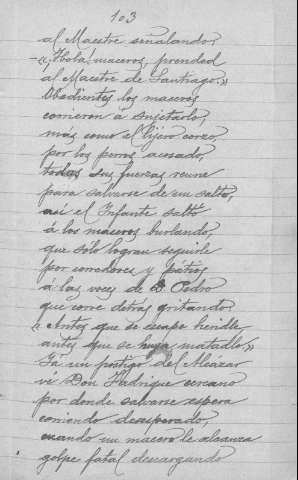 103
al Maestre señalando,
—«¡Holá! maceros, prended
al Maestre de Santiago.»
Obedientes los maceros
corrieron á sujetarlo,
más, como el lijero corzo
por los perros acosado,
todas sus fuerzas reune
para salvarse de un salto,
así el Infante saltó
á los maceros burlando
que sólo logran seguirle
por corredores y pátios
á las voces de D. Pedro
que corre detrás gritando
«Antes que se escape heridle,
antes que se huya matadlo.»
Yá un postigo del Alcázar
vé Don Fadrique cercano
por donde salvarse espera
corriendo desesperado,
cuando un macero le alcanza
golpe fatal descargando